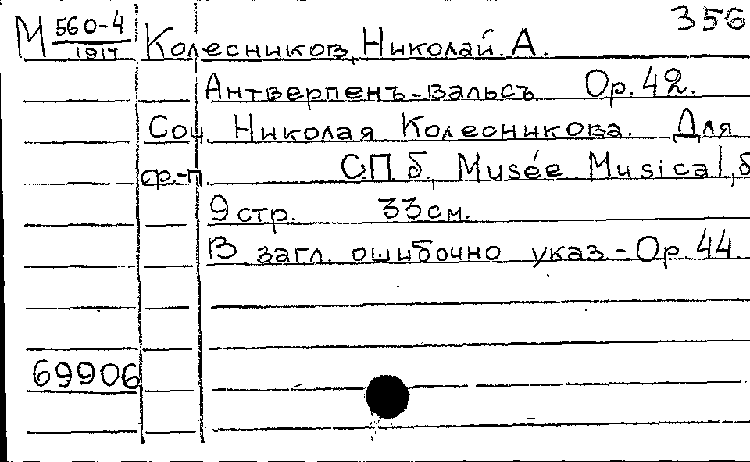 356
М 560-4/1917 Колесников, Николай А.
Антверпенъ-вальсъ Op. 42.
Соч. Николая Колесникова. Для
ср.-п. СПб, Musée Musical, б
9 стр. 33 см.
В загл. ошибочно указ - Op. 44.
69906